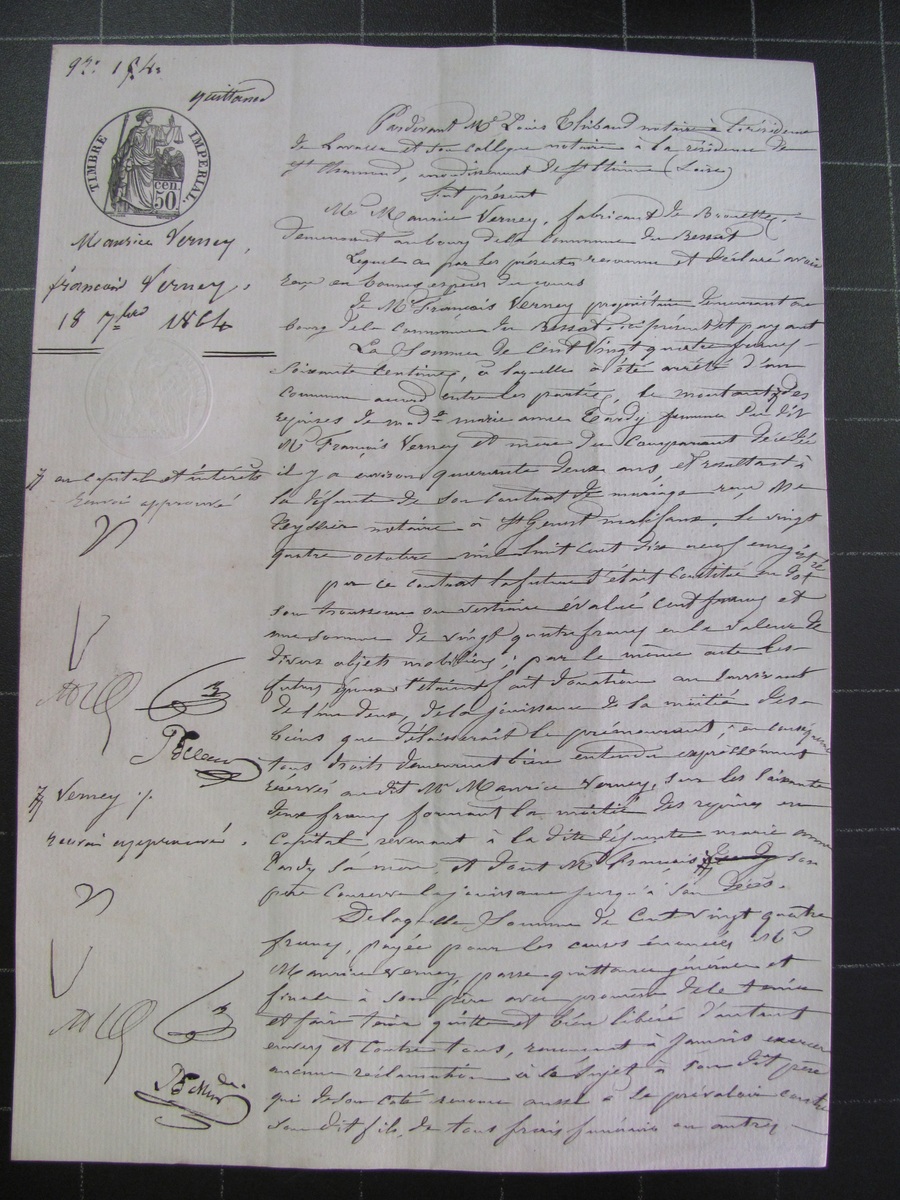 quittance
TIMBRE IMPERIAL.
50 cen
Maurice Verney,
françois Verney,
18 7bre 1864
Pardevant Me Louis Thibaud notaire à la résidence
de Lavalla et son collegue notaire à la résidence de
St Chamond, arrondissement de St Etienne (Loire)
fut présent
Mr Maurice Verney, fabricant de
demeurant au bourg de la commune du Bessat
Lequel a par les présentes reconnu et déclaré avoir
reçu en bonnes espèces du cours
de Mr François Verney propriétaire demeurant au
bourg de la commune du Bessat, ici présent et payant
La somme de cent vingt quatre francs
soixante centimes, à laquelle a été arrêté d'un
commun accord entre les parties, le montant des
reprises de made marie anne Tardy femme du dit
Mr François Verney et mère du comparant décédée
il y a environ quarante deux ans et résultant à
la défunte de son contrat de mariage reçu Me
notaire à St Genest malifaux, le vingt
quatre octobre mil huit cent dix neuf enregistré
par ce contrat la future s'était constitué en dot
son trousseau ou vestiaire évalué cent francs et
une somme de vingt quatre francs en la valeur de
divers objets mobiliers; par le même acte les
futurs époux s'étaient fait donation au survivant
de l'un d'eux, de la jouissance de la moitié des
biens que délaisserait le prémourant; en conséquence
tous droits demeurent bien entendu expressément
réservés au dit Mr Maurice Verney, sur les soixante
deux francs formant la moitié des reprises en
capital revenant à la dite défunte marie anne
Tardy sa mère, et dont Mr François son
père conserve la jouissance jusqu'à son décès.
De laquelle somme de cent vingt quatre
francs, payée pour les causes énoncées Mr
Maurice Verney, passe quittance générale et
finale à son père avec promesse de le tenir
et faire tenir quitte et bien libéré d'autant
envers et contre tous, renonçant à jamais exercer
aucune réclamation à ce sujet à son dit père
qui de son coté renonce aussi à se prévaloir contre
son dit fils, de tous frais funéraires ou autres
en capital et intérêts
Renvoi approuvé
Verney
renvoi approuvé.